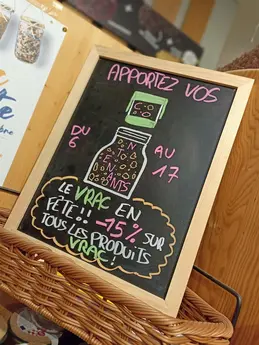 APPORTEZ VOS
CO
NTENANTS
DU
6
AU
17
LE VRAC EN
FÊTE!! -15% SUR
TOUS LES PRODUITS
VRAC!